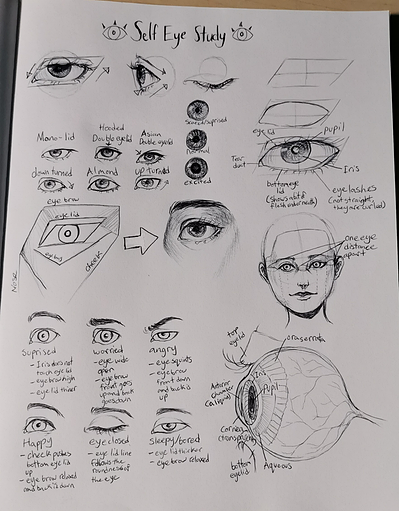 Self Eye Study
scared/suprised
normal
excited
Mono-lid
Hooded
Double eyelid
Asian
Double eyelid
down turned
Almond
up turned
eye lid
pupil
Tear
duct
Iris
bottom eye
lid
(shows a bit of
flesh underneath)
eyelashes
(not straight,
they are curled)
eye brow
eye lid
eye bag
cheek
Nose
one eye
distance
apart
Suprised
- Iris does not
touch eye lid
- eye brow high
- eye lid thiner
worried
- eye wide
open
- eye brow
front goes
up and back
goes down
angry
- eye squints
- eye brow
front down
and back is
up
Happy
- cheek pushes
bottom eye lid
up
- eye brow relaxed
and back is down
eye closed
- eye lid line
follows the
roundness of
the eye
sleepy/bored
- eye lid thicker
- eye brow relaxed
top
eyelid
ora serrata
Iris
Pupil
Cornea
(transparent)
bottom
eyelid
Aqueous